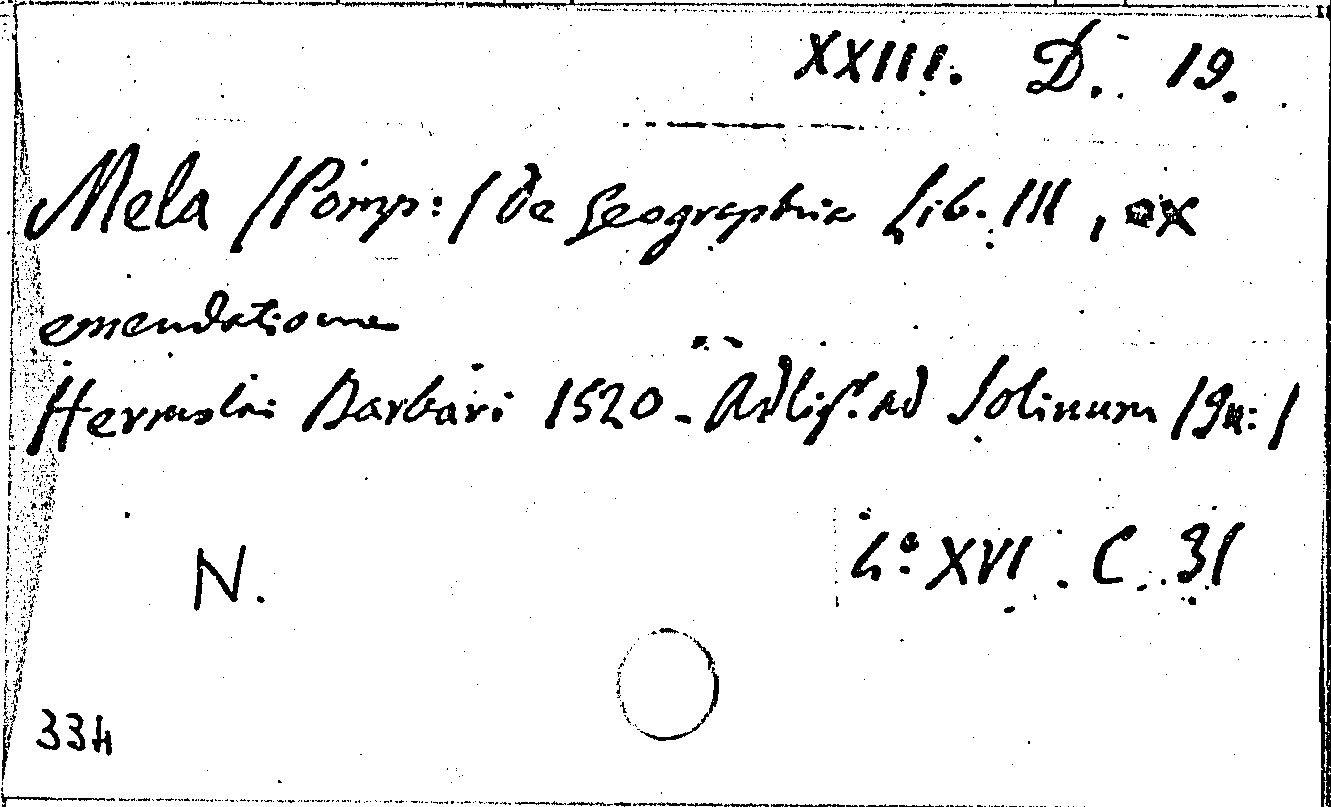 XXIII. D. 19.
Mela /Pomp:/ de Geographia Lib. III, ex
emendatione
Hermolai Barbari 1520. Adlig. ad Solinum
N.
4° XVI. C. 31
334